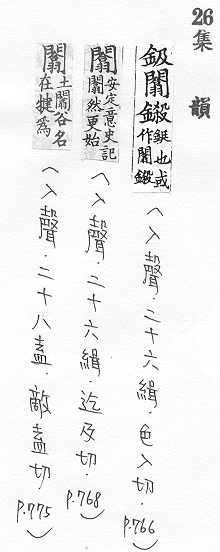 26 集韻
鈒闟鏾 鋋也或作闟鏾
(入聲.二十六緝.色入切.P.766)
闟 安定意史記闟然更始
(入聲.二十六緝.迄及切.P.768)
闟 土闟谷名在犍為
(入聲.二十八盍.敵盍切.P.775)